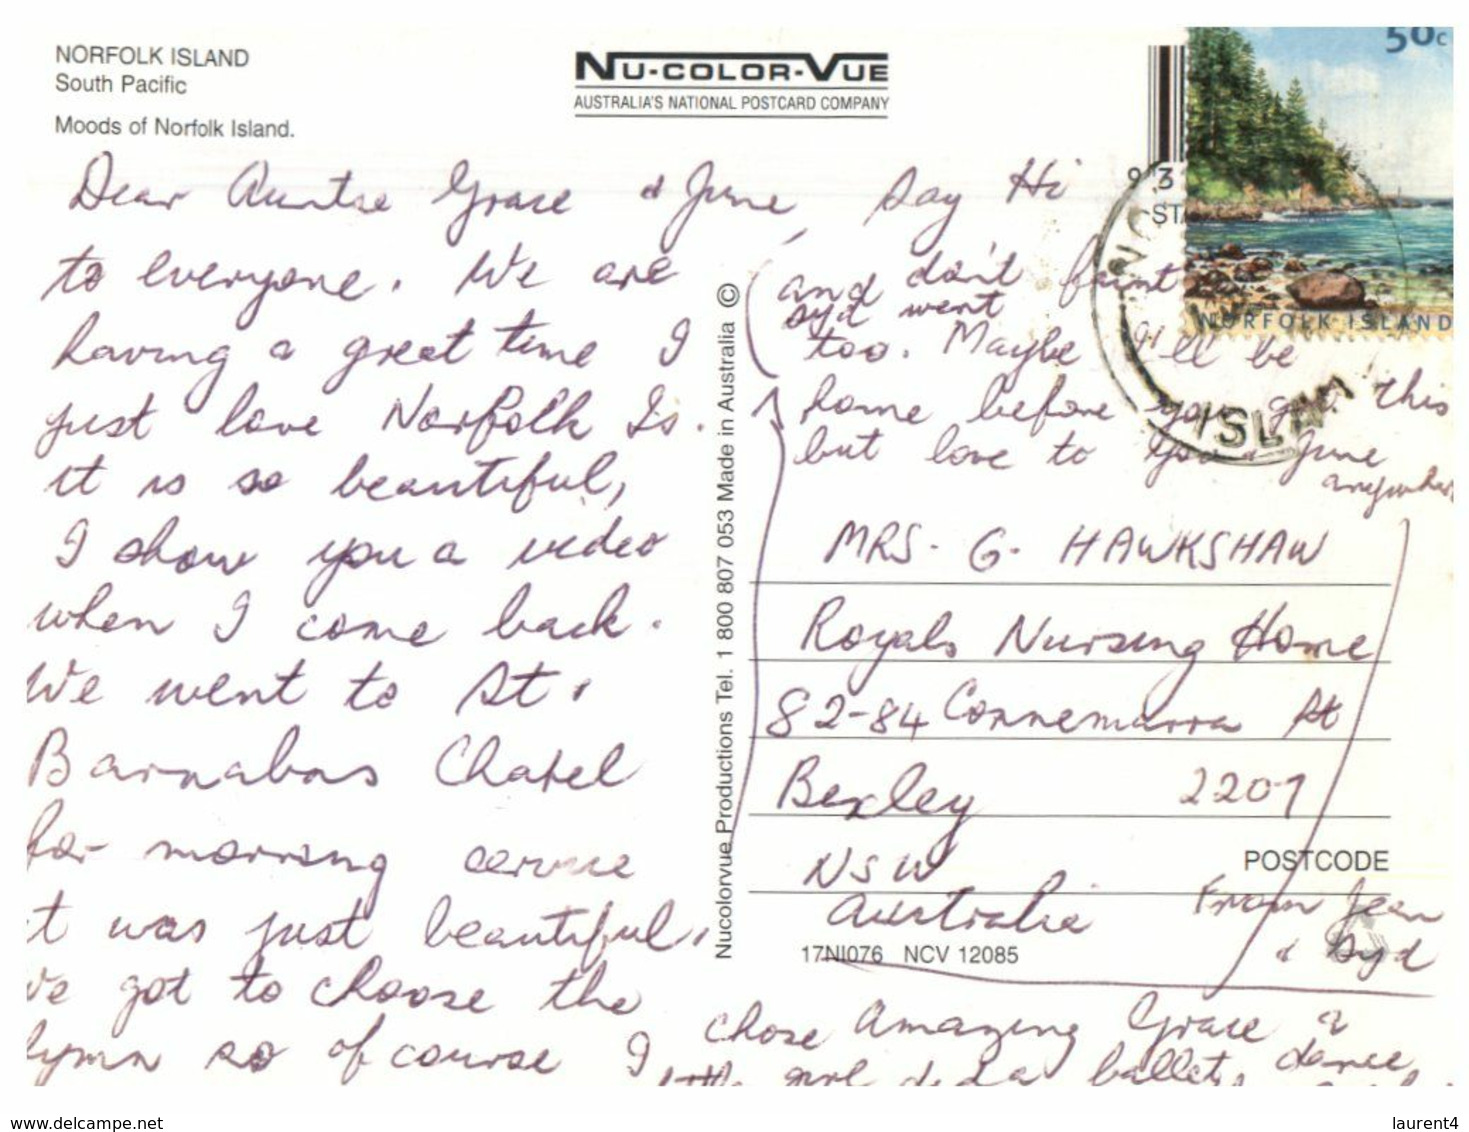 NORFOLK ISLAND
South Pacific
Moods of Norfolk Island.
NU-COLOR-VUE
AUSTRALIA'S NATIONAL POSTCARD COMPANY
50c
NORFOLK ISLAND
Dear Auntie Grace & June, Say Hi
to everyone. We are
having a great time I
just love Norfolk Is.
it is so beautiful,
I show you a video
when I come back.
We went to St.
Barnabas Chapel
for morning service
it was just beautiful.
We got to choose the
hymn so of course I chose Amazing Grace a
little girl did a ballet dance
and don't faint
Syd went
too. Maybe I'll be
home before you get this
but love to you & June
anywhere
Nucolorvue Productions Tel. 1 800 807 053 Made in Australia ©
MRS. G. HAWKSHAW
Royals Nursing Home
82-84 Connemarra St
Bexley 2207
NSW
Australia
POSTCODE
From Jean
& Syd
17NI076 NCV 12085
9 3
ISLAN
delcampe.net
laurent4